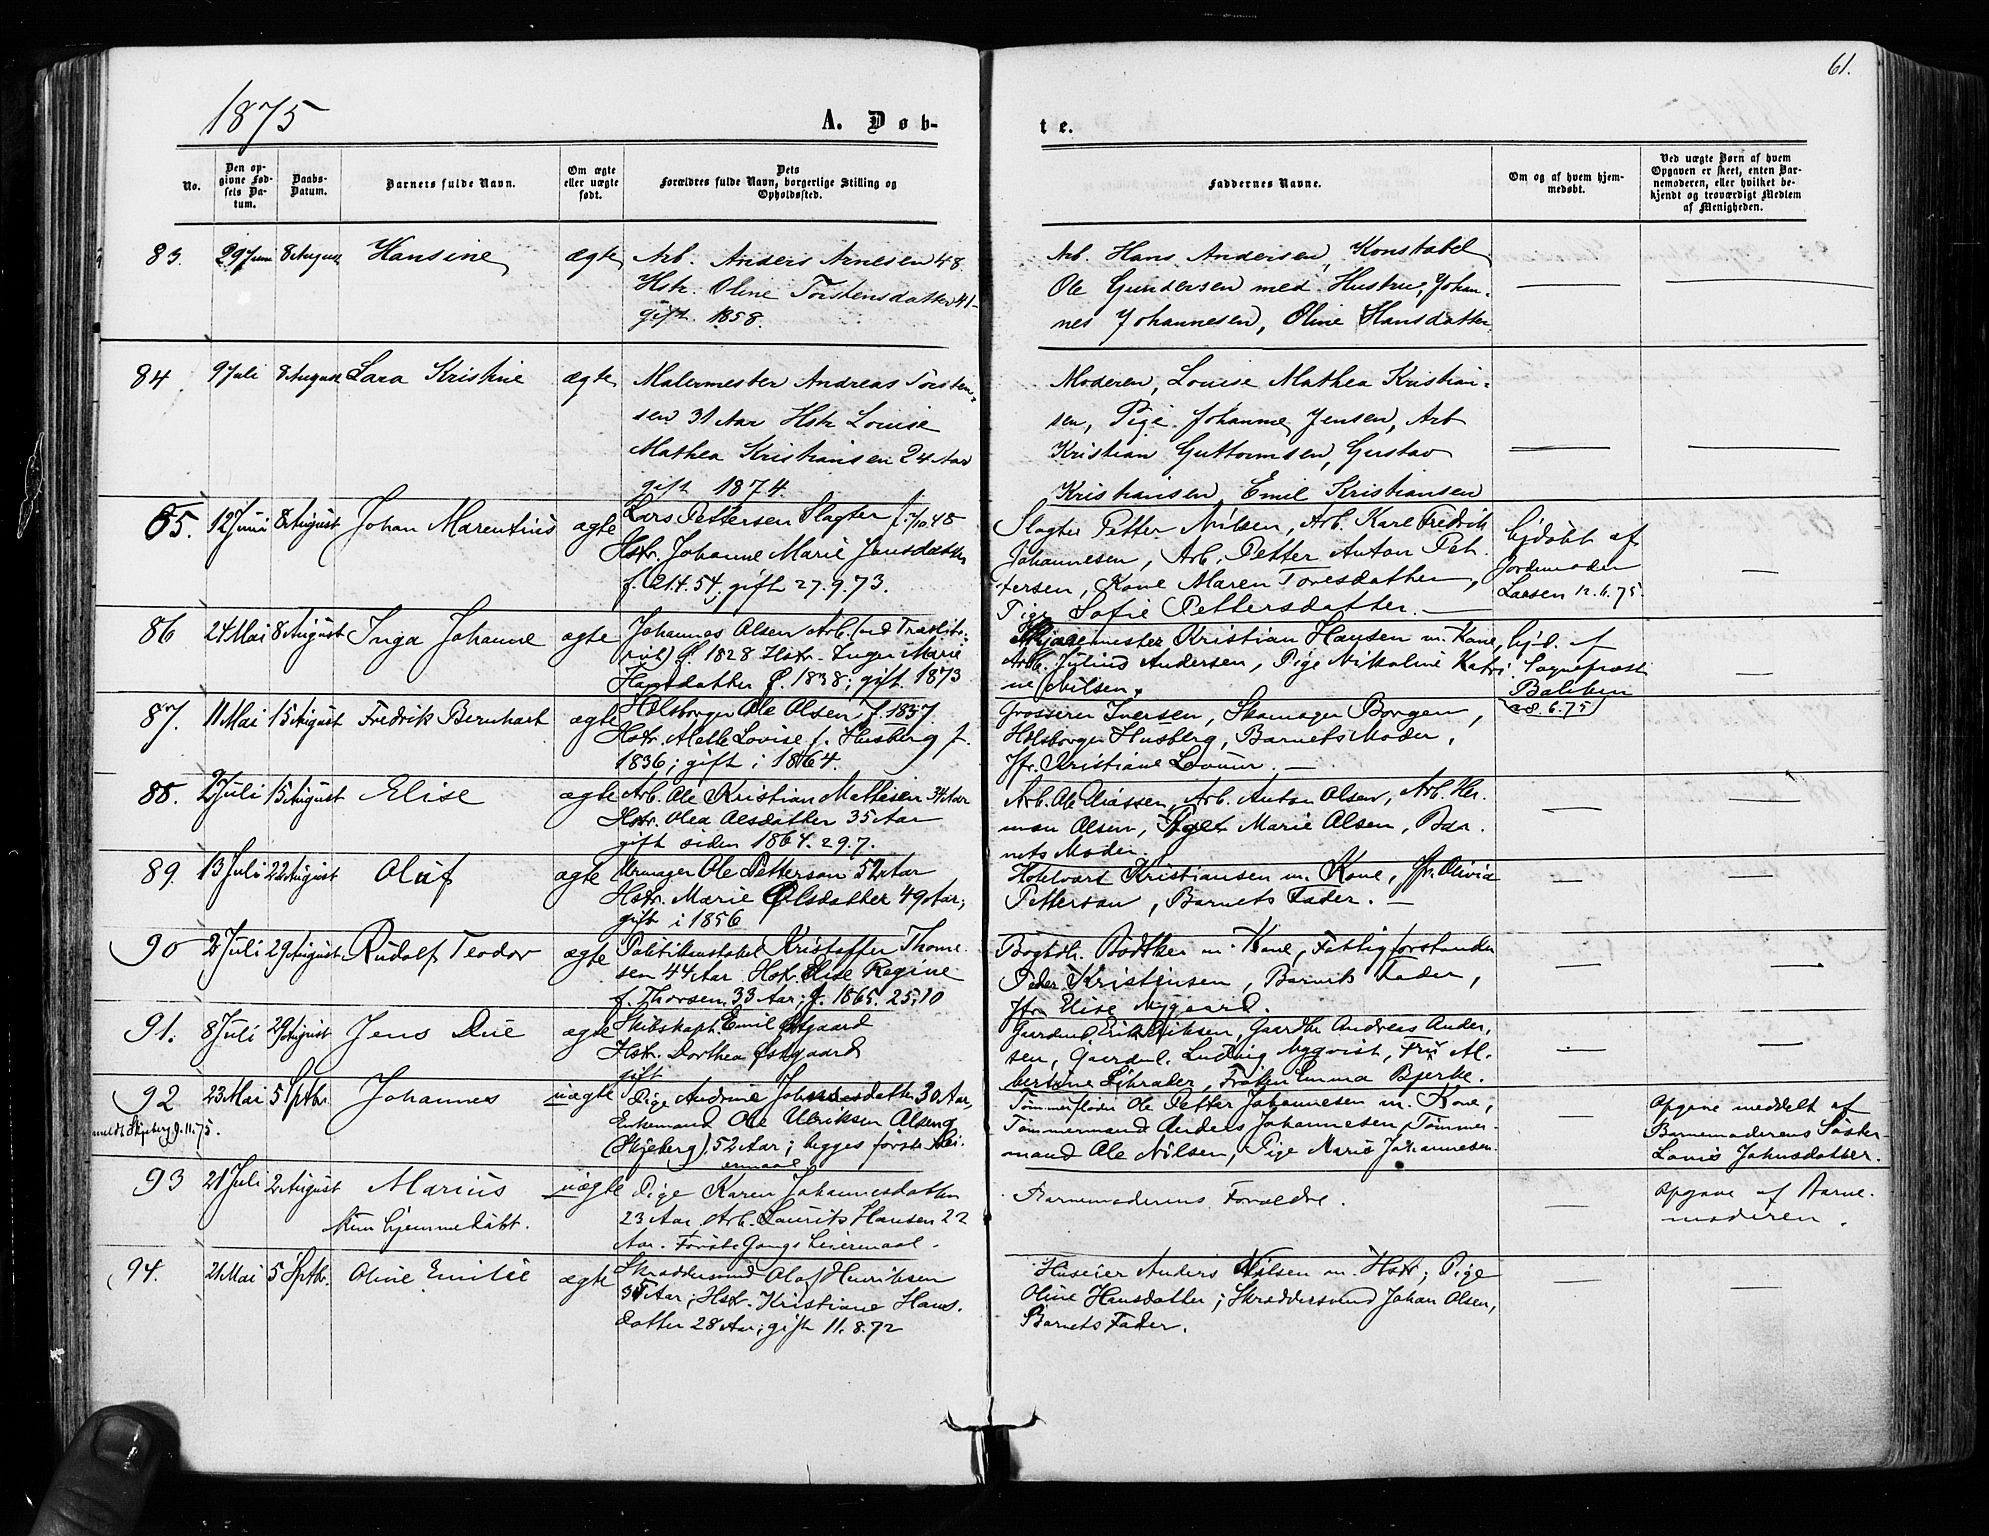 61.
1875
A. Døb-
te.
No.
Den op-
givne Fød-
sels Da-
tum.
Daabs-
Datum.
Barnets fulde Navn.
Om ægte
eller uægte
født.
Dets
Forældres fulde Navn, borgerlige Stilling og
Opholdssted.
Faddernes Navne.
Om og af hvem hjem-
medøbt.
Ved uægte Børn af hvem
Opgaven er skeet, enten Bar-
nemoderen, eller hvilket be-
kjendt og troværdigt Medlem
af Menigheden.
83. 29 Juni 8 August Hansine ægte
Arb. Anders Arnesen 48
Hstr. Oline Torstensdatter 41
gift 1858.
Arb. Hans Andersen, Konstabel
Ole Gundersen med Hustru, Johan-
nes Johannesen, Oline Hansdatter
84. 9 Juli 8 August Lara Kristine ægte
Malermester Andreas Torsten-
sen 31 Aar Hstr Louise
Mathea Kristiansen 24 Aar
gift 1874.
Moderen, Louise Mathea Kristian-
sen, Pige Johanne Jensen, Arb
Kristian Guttormsen, Gustav
Kristiansen Emil Kristiansen
85. 12 Juni 8 August Johan Marentius ægte
Lars Pettersen Slagter
Hstr. Johanne Marie Jensdatter
f. 21.4.54; gift 27.9.73.
Slagter Petter Nilsen, Arb. Karl Fredrik
Johannesen, Arb. Petter Anton Pet-
tersen, Kone Maren Toresdatter,
Pige Sofie Pettersdatter.
hjdøbt af
Jordemoder
Larsen 12.6.75
86 24 Mai 8 August Inga Johanne ægte
Johannes Olsen Arb.
f. 1828 Hstr. Inger Marie
Hansdatter f. 1838; gift 1873
Kristian Hansen m. Kone,
Arb. Julius Andersen, Pige Nikoline Katri-
ne Nilsen.
hjd. af
Sogneprest
87. 11 Mai 15 August Fredrik Bernhart ægte
Ole Olsen, f. 1837.
Hstr. Mette Lovise f. Husberg f.
1836; gift i 1864.
Grosserer Iversen, Skomager Borgen,
Husberg, Barnets Moder,
Jfr. Kristiane
88. 2 Juli 15 August Elise ægte
Arb. Ole Kristian Mathisen 34 Aar
Hstr. Olea Olsdatter 35 Aar
gift siden 1864. 29.7.
Arb. Ole Arb. Anton Olsen, Arb. Her-
man Olsen, Pige Marie Olsen, Bar-
nets Moder.
89. 13 Juli 22 August Oluf ægte
Urmager Ole Petterson 52 Aar
Hstr. Marie Olsdatter 49 Aar;
gift i 1856
Hotelvært Kristiansen m. Kone, Jfr. Olivia
Petterson, Barnets Fader.
90 2 Juli 29 August Rudolf Teodor ægte
Politikonstabel Kristoffer Thome-
sen 44 Aar Hstr. Elise Regine
f. Thorsen 33 Aar; g. 1865. 25.10
Bogtdl. Bødtker m. Kone, Fattigforstander
Peder Kristensen, Barnets Fader,
Jfr. Elise Nygaard.
91. 8 Juli 29 August Jens Due ægte
Skibskapt. Emil Østgaard
Hstr. Dorthea Østgaard
gift
Gaardm. Erik Eriksen, Gaardbr. Andreas Ander-
sen, Gaardm. Ludvig Nyqvist, Fru Al-
bertine Schrader, Frøken Emma Bjerke.
92 23 Mai 5 Septbr. Johannes uægte
meldt Skjeberg 9.11.75.
Pige Andrine 30 Aar,
Enkemand Ole Ulriksen Alseng
(Skjeberg) 52 Aar; begges første Lei-
ermaal
Tømmerfløder Ole Petter Johannesen m. Kone,
Tømmermand Anders Johannesen Tømmer-
mand Ole Nilsen, Pige Marie Johannesen.
Opgave meddelt af
Barnemoderens Søster
Lovise Johnsdatter.
93 21 Juli 2 August Marius uægte
Kun hjemmedøbt.
Pige Karen Johannesdatter
23 Aar Arb. Laurits Hansen 22
Aar. Første Gangs Leiermaal.
Barnemoderens Forældre.
Opgave af Barne-
moderen.
94. 21 Mai 5 Septbr. Oline Emilie ægte
Skreddersvend Olaf Henriksen
Aar; Hstr. Kristiane Hans-
datter 28 Aar; gift 11.8.72
Huseier Anders Nilsen m. Hstr; Pige
Oline Hansdatter; Skreddersvend Johan Olsen,
Barnets Fader.